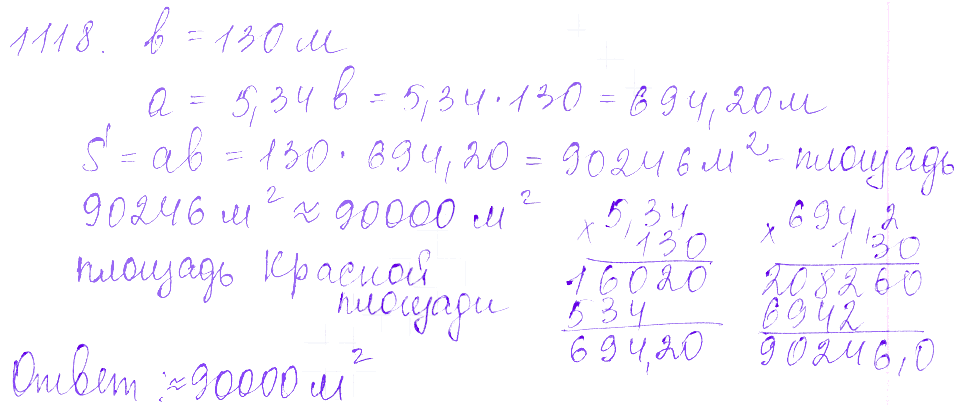 1118. b = 130 м
a = 5,34 b = 5,34 · 130 = 694,20 м
S = ab = 130 · 694,20 = 90246 м² - площадь
90246 м² ≈ 90000 м²
площадь Красной
площади
× 5,34
130
16020
534
694,20
× 694,2
130
208260
6942
90246,0
Ответ: ≈90000 м²